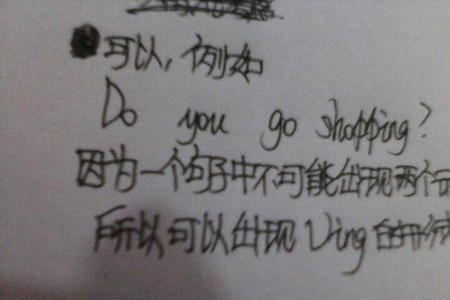 可以,例如
Do you go shopping?
因为一个句子中不可能出现两个
所以可以出现Ving的形式